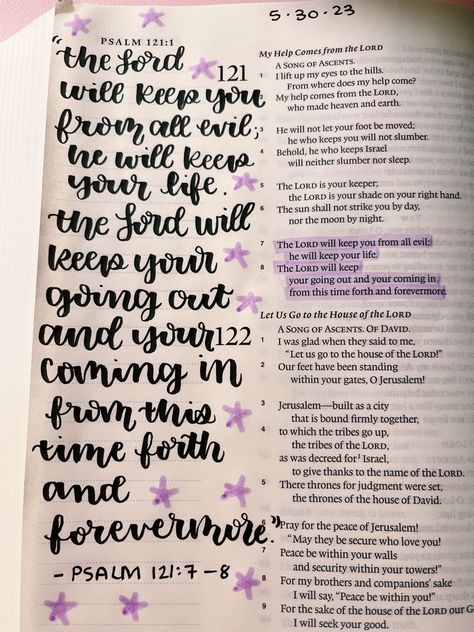 5-30-23
PSALM 121:1
"the Lord
will keep you
from all evil;
he will keep
your life.
the Lord will
keep your
going out
and your
coming in
from this
time forth
and
forevermore."
- PSALM 121:7-8
My Help Comes from the LORD
121
A SONG OF ASCENTS.
1 I lift up my eyes to the hills.
From where does my help come?
2 My help comes from the LORD,
who made heaven and earth.
3 He will not let your foot be moved;
he who keeps you will not slumber.
4 Behold, he who keeps Israel
will neither slumber nor sleep.
5 The LORD is your keeper;
the LORD is your shade on your right hand.
6 The sun shall not strike you by day,
nor the moon by night.
7 The LORD will keep you from all evil;
he will keep your life.
8 The LORD will keep
your going out and your coming in
from this time forth and forevermore.
Let Us Go to the House of the LORD
122
A SONG OF ASCENTS. OF DAVID.
1 I was glad when they said to me,
"Let us go to the house of the LORD!"
2 Our feet have been standing
within your gates, O Jerusalem!
3 Jerusalem—built as a city
that is bound firmly together,
4 to which the tribes go up,
the tribes of the LORD,
as was decreed for¹ Israel,
to give thanks to the name of the LORD.
5 There thrones for judgment were set,
the thrones of the house of David.
6 Pray for the peace of Jerusalem!
"May they be secure who love you!
7 Peace be within your walls
and security within your towers!"
8 For my brothers and companions' sake
I will say, "Peace be within you!"
9 For the sake of the house of the LORD our G
I will seek your good.